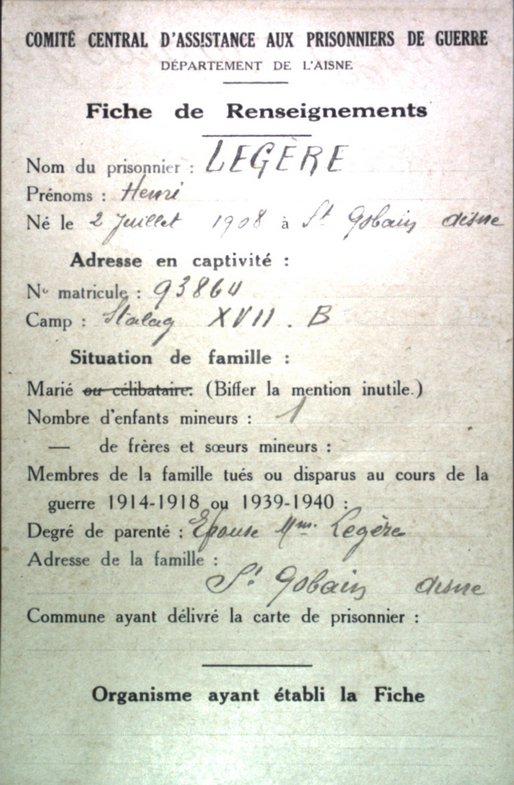 COMITÉ CENTRAL D'ASSISTANCE AUX PRISONNIERS DE GUERRE
DÉPARTEMENT DE L'AISNE
Fiche de Renseignements
Nom du prisonnier : LEGÈRE
Prénoms : Henri
Né le 2 Juillet 1908 à St Gobain Aisne
Adresse en captivité :
No matricule : 93864
Camp : Stalag XVII. B
Situation de famille :
Marié ou célibataire. (Biffer la mention inutile.)
Nombre d'enfants mineurs : 1
— de frères et sœurs mineurs :
Membres de la famille tués ou disparus au cours de la
guerre 1914-1918 ou 1939-1940 :
Degré de parenté : Epouse Mme. Legère
Adresse de la famille :
St Gobain Aisne
Commune ayant délivré la carte de prisonnier :
Organisme ayant établi la Fiche